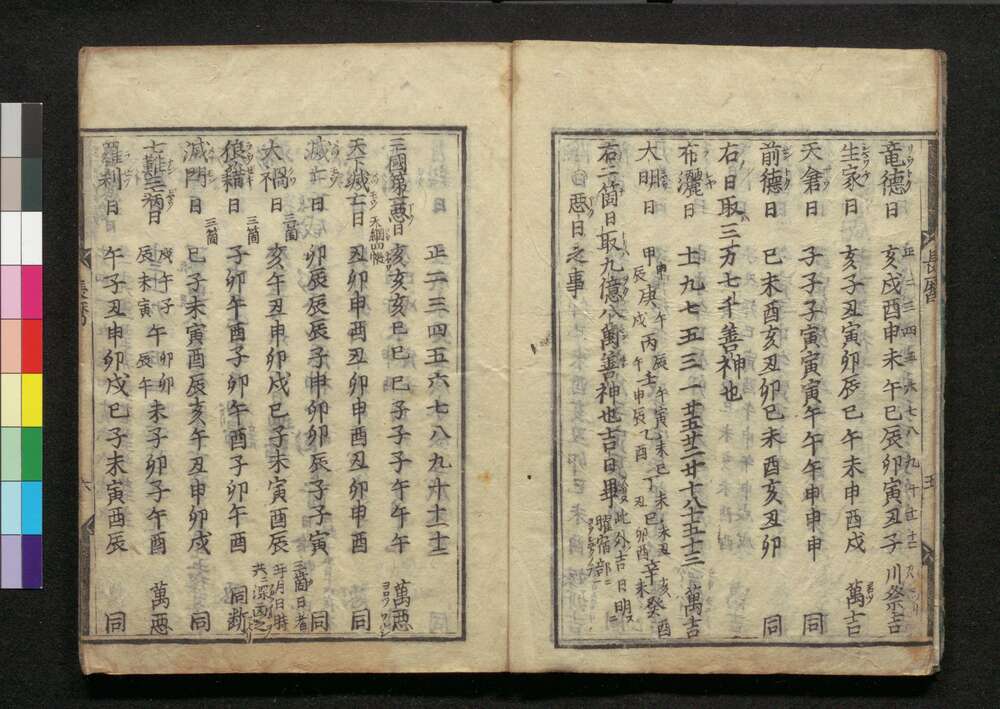 正二三四五六七八九十十一十二
竜德日 亥戌酉申未午巳辰卯寅丑子 川祭吉
生家日 亥子丑寅卯辰巳午未申酉戌 萬吉
天倉日 子子子寅寅寅午午午申申申 同
前德日 巳未酉亥丑卯巳未酉亥丑卯 同
右日取三万七千善神也
布灑日 士九七五三一廿五廿二廿十八十五十三 萬吉
大明日
右二箇日取九億八萬善神也吉日畢 此外吉日明ス 曜宿部ニ
悪日之事
正二三四五六七八九十十一十二
三國第一悪日 亥亥亥巳巳巳子子子午午午 萬悪
天下滅亡日 丑卯申酉丑卯申酉丑卯申酉 同
滅亡日 卯辰辰辰子申卯卯辰子子寅 同
大禍日 三箇 亥午丑申卯戌巳子未寅酉辰 三箇日者
狼藉日 三箇 子卯午酉子卯午酉子卯午酉 同
滅門日 三箇 巳子未寅酉辰亥午丑申卯戌 同
七難三病日 未子卯子午酉 萬悪
羅刹日 午子丑申卯戌巳子未寅酉辰 同
長暦
五
長暦
六